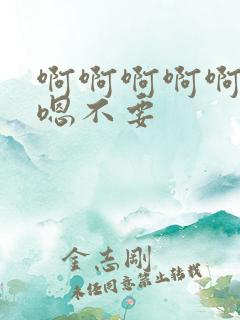 啊啊啊啊啊
嗯不要
金志刚
未经同意禁止转载